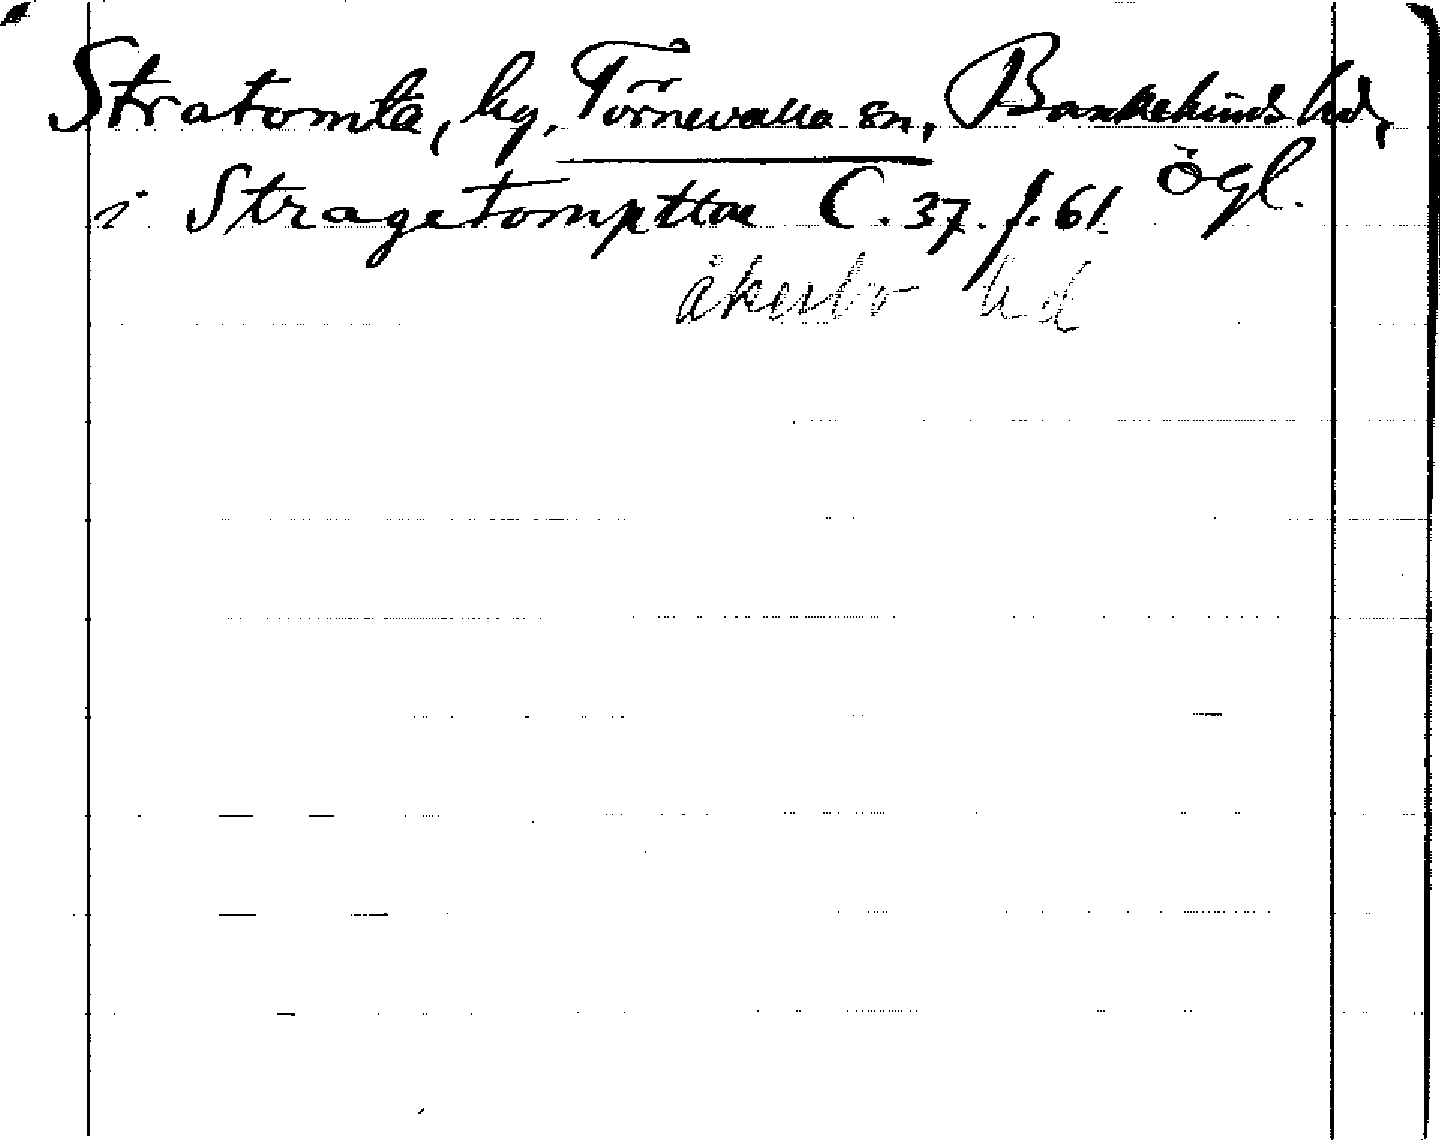 Stratomta, by, Törnevalla sn, Bankekinds hd,
Ögl.
i Stragetompttae C. 37. f. 61.
åkerbo hd